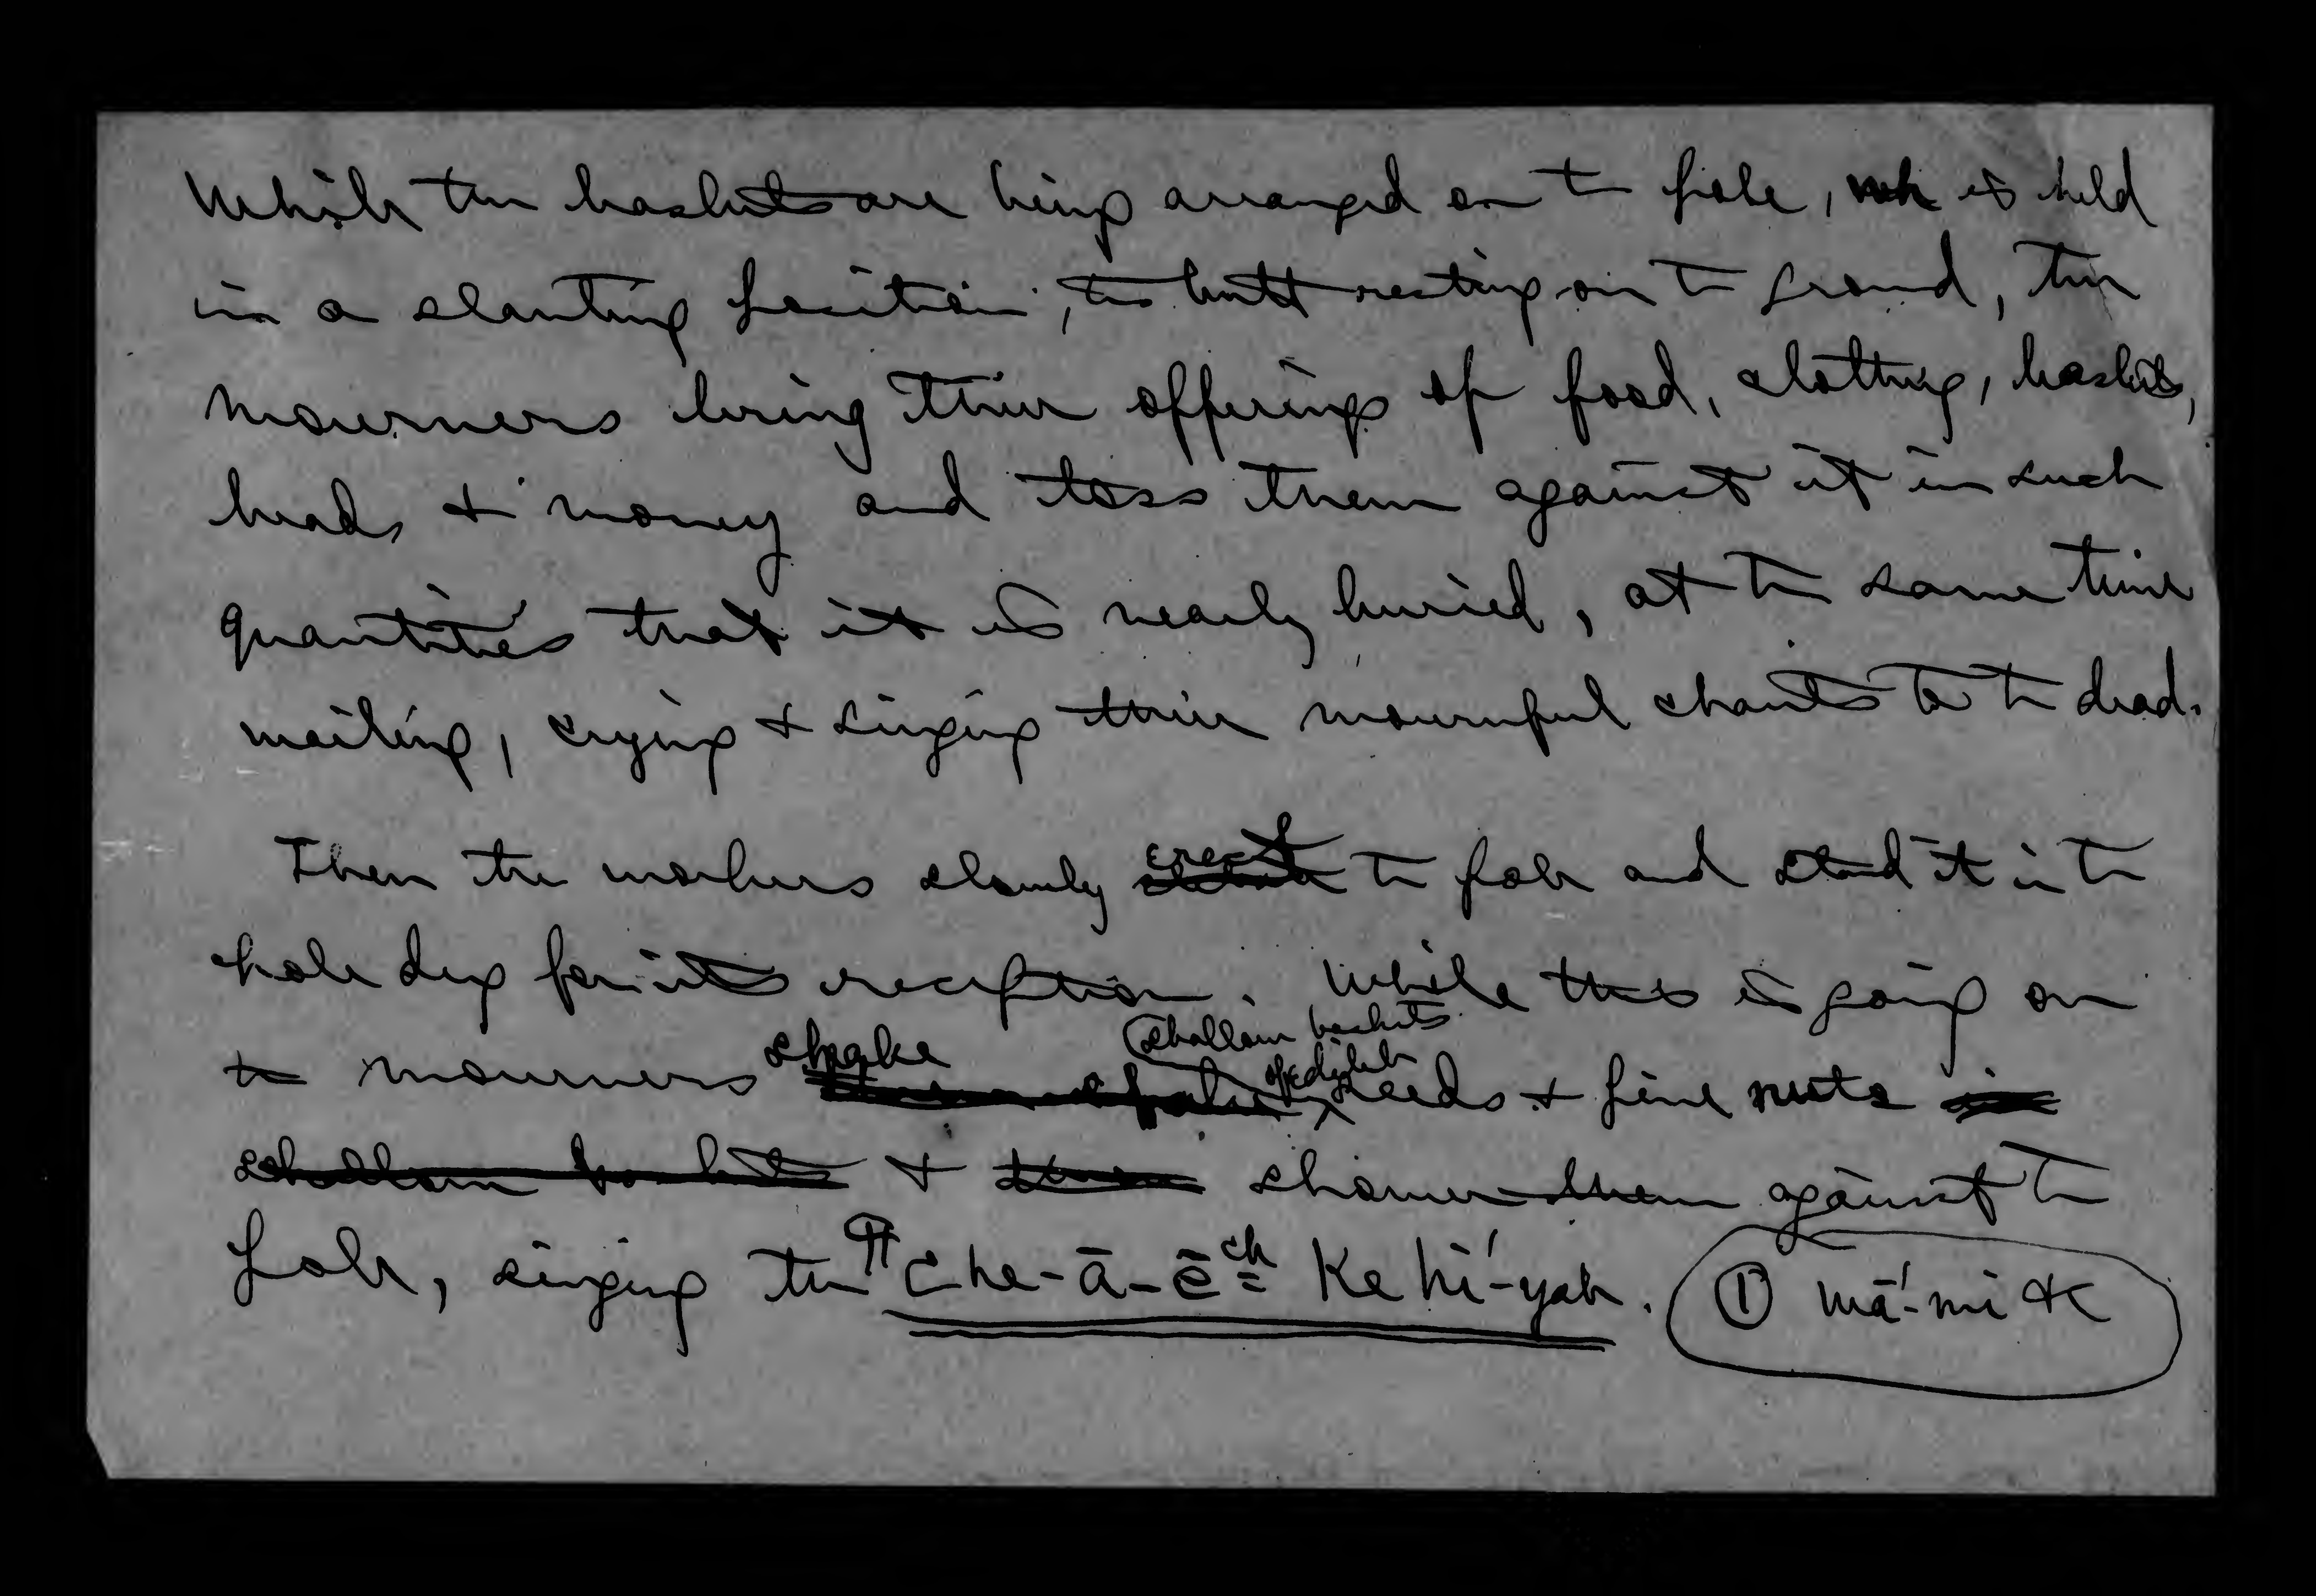 While the baskets are being arranged on t— pole, wh is held
in a slanting position, its butt resting on t— ground, the
mourners bring their offerings of food, clothing, baskets,
beads & money and toss them against it in such
quantities that it is nearly buried, at t— same time
wailing, crying & singing their mournful chants to t— dead.
Then the workers slowly erect t— pole and stand it in t—
hole dug for its reception. While this is going on
t— mourners shake shallow baskets of edible seeds & pine nuts in
shallow baskets & shower them against t—
pole, singing the ¶ Che-ā-ē ch = Ke hī´-yah. ① mā´-mi &c